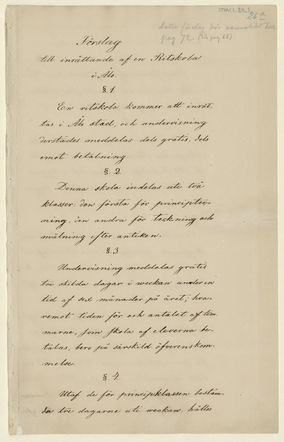 26 a
Förslag
till inrättande af en Ritskola
i Åbo.
§ 1
En ritskola kommer att inrät-
tas i Åbo stad, och undervisning
derstädes meddelas dels gratis, dels
emot betalning.
§. 2.
Denna skola indelas uti två
klasser: den första för principteck-
ning, den andra för teckning och
målning efter antiken.
§. 3
Undervisning meddelas gratis
tre skilda dagar i veckan under en
tid af sex månader på året; hva-
remot tiden för och antalet af tim-
marne, som skola af eleverna be-
talas, bero på särskild öfverenskom-
melse.
§ 4
Utaf de för principklassen bestäm-
da tre dagarne uti veckan, hålles